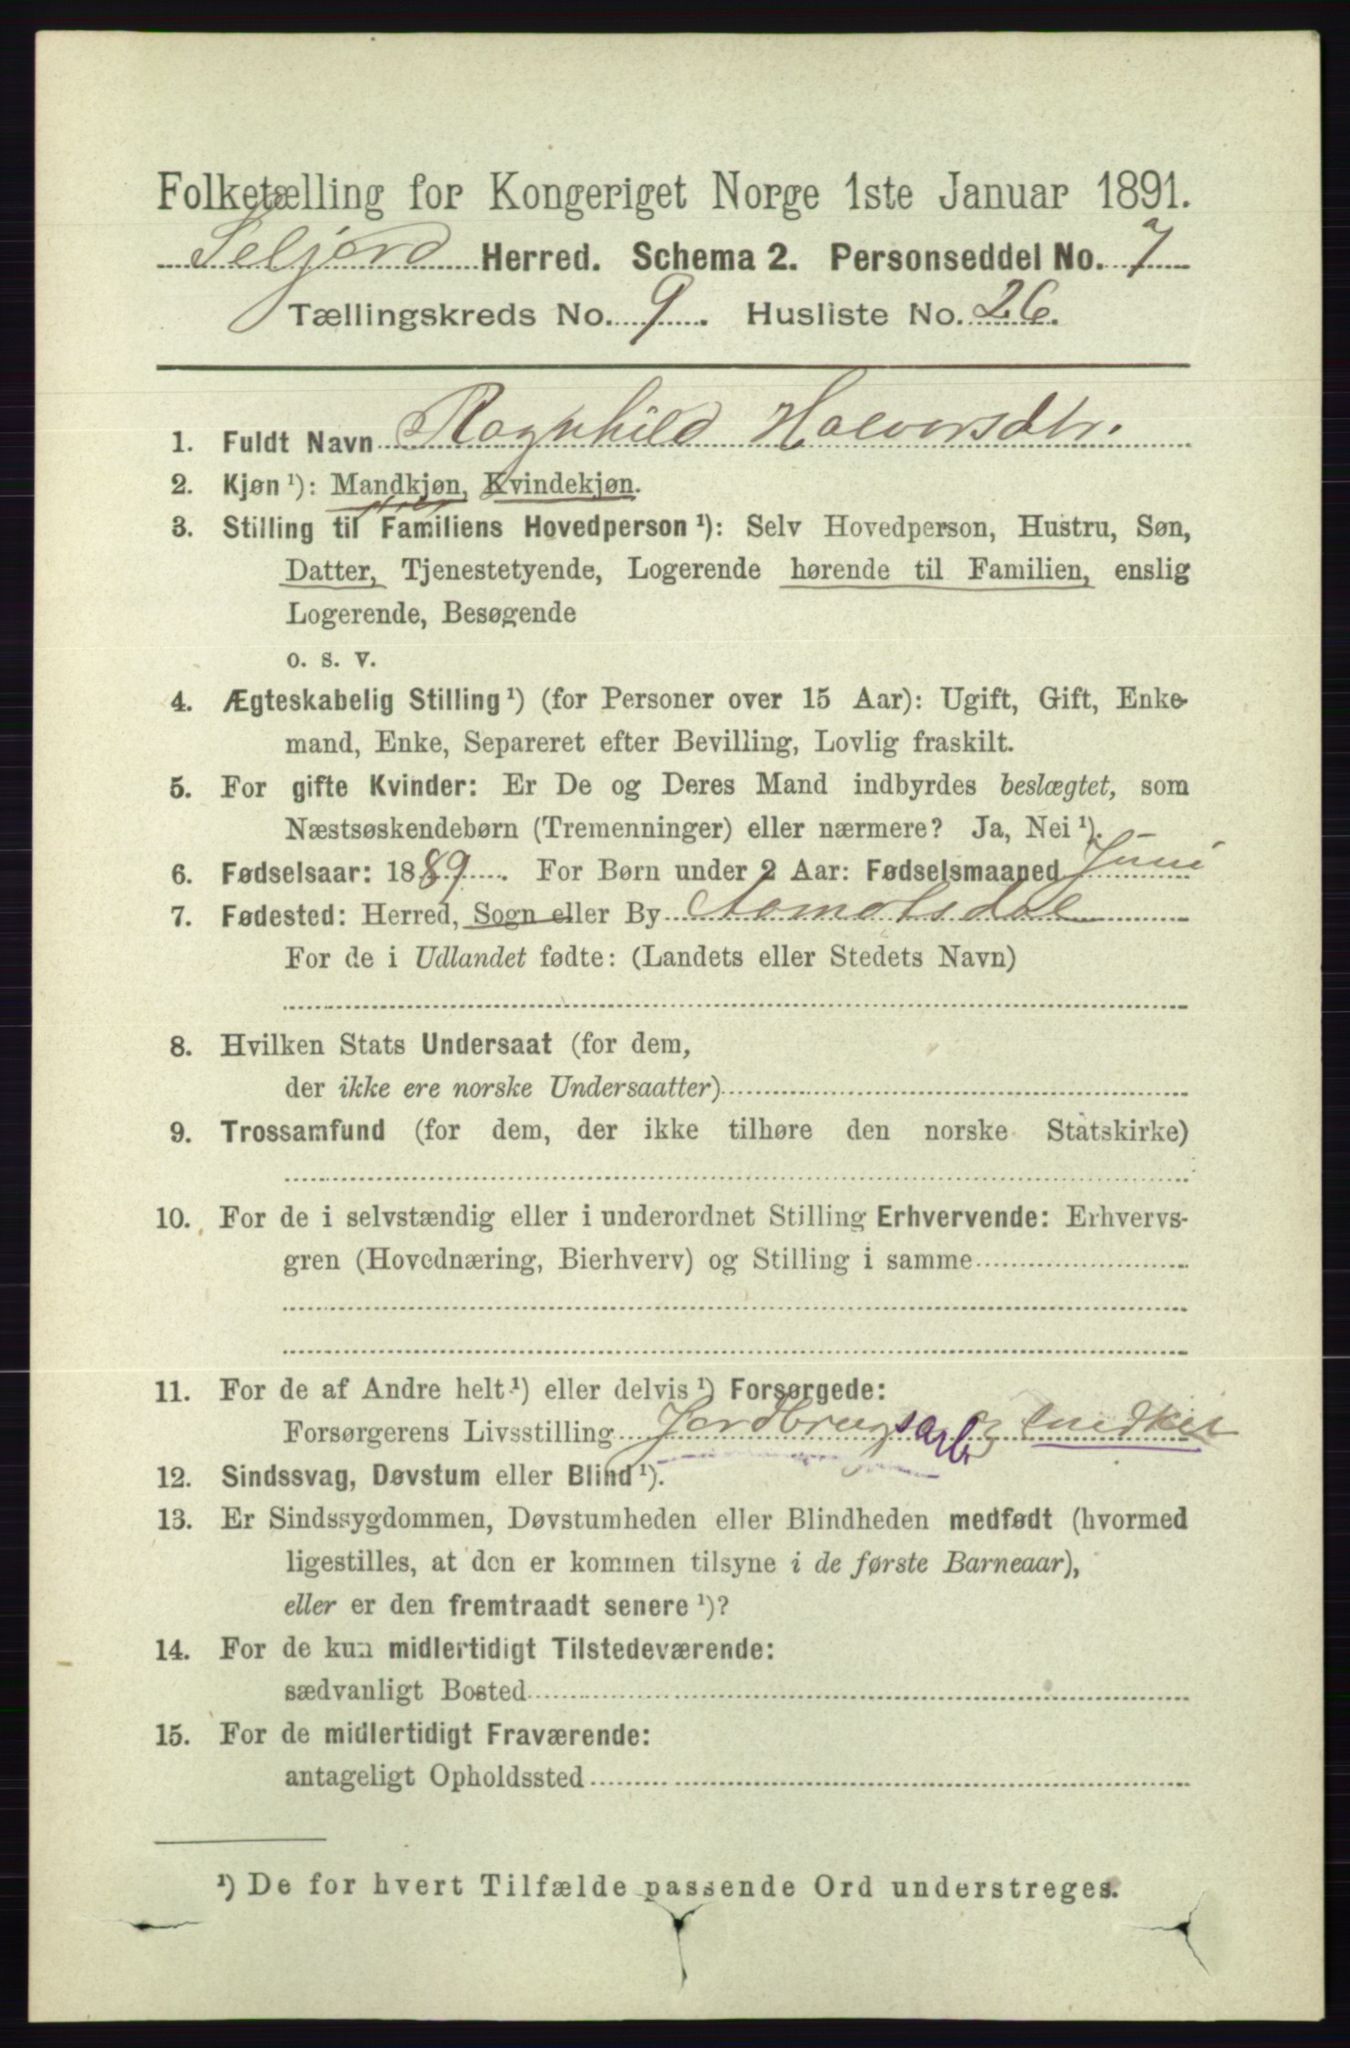 Folketælling for Kongeriget Norge 1ste Januar 1891.
Seljord Herred. Schema 2. Personseddel No. 7
Tællingskreds No. 9. Husliste No. 26.
1. Fuldt Navn Ragnhild Halvorsdtr.
2. Kjøn ¹): Mandkjøn, Kvindekjøn.
3. Stilling til Familiens Hovedperson ¹): Selv Hovedperson, Hustru, Søn,
Datter, Tjenestetyende, Logerende hørende til Familien, enslig
Logerende, Besøgende
o. s. v.
4. Ægteskabelig Stilling ¹) (for Personer over 15 Aar): Ugift, Gift, Enke-
mand, Enke, Separeret efter Bevilling, Lovlig fraskilt.
5. For gifte Kvinder: Er De og Deres Mand indbyrdes beslægtet, som
Næstsøskendebørn (Tremenninger) eller nærmere? Ja, Nei ¹).
6. Fødselsaar: 1889. For Børn under 2 Aar: Fødselsmaaned Juni
7. Fødested: Herred, Sogn eller By Aamotsdal
For de i Udlandet fødte: (Landets eller Stedets Navn)
8. Hvilken Stats Undersaat (for dem,
der ikke ere norske Undersaatter)
9. Trossamfund (for dem, der ikke tilhøre den norske Statskirke)
10. For de i selvstændig eller i underordnet Stilling Erhvervende: Erhvervs-
gren (Hovednæring, Bierhverv) og Stilling i samme
11. For de af Andre helt ¹) eller delvis ¹) Forsørgede:
Forsørgerens Livsstilling Jordbrugsarb
12. Sindssvag, Døvstum eller Blind ¹).
13. Er Sindssygdommen, Døvstumheden eller Blindheden medfødt (hvormed
ligestilles, at den er kommen tilsyne i de første Barneaar),
eller er den fremtraadt senere ¹)?
14. For de kun midlertidigt Tilstedeværende:
sædvanligt Bosted
15. For de midlertidigt Fraværende:
antageligt Opholdssted
¹) De for hvert Tilfælde passende Ord understreges.